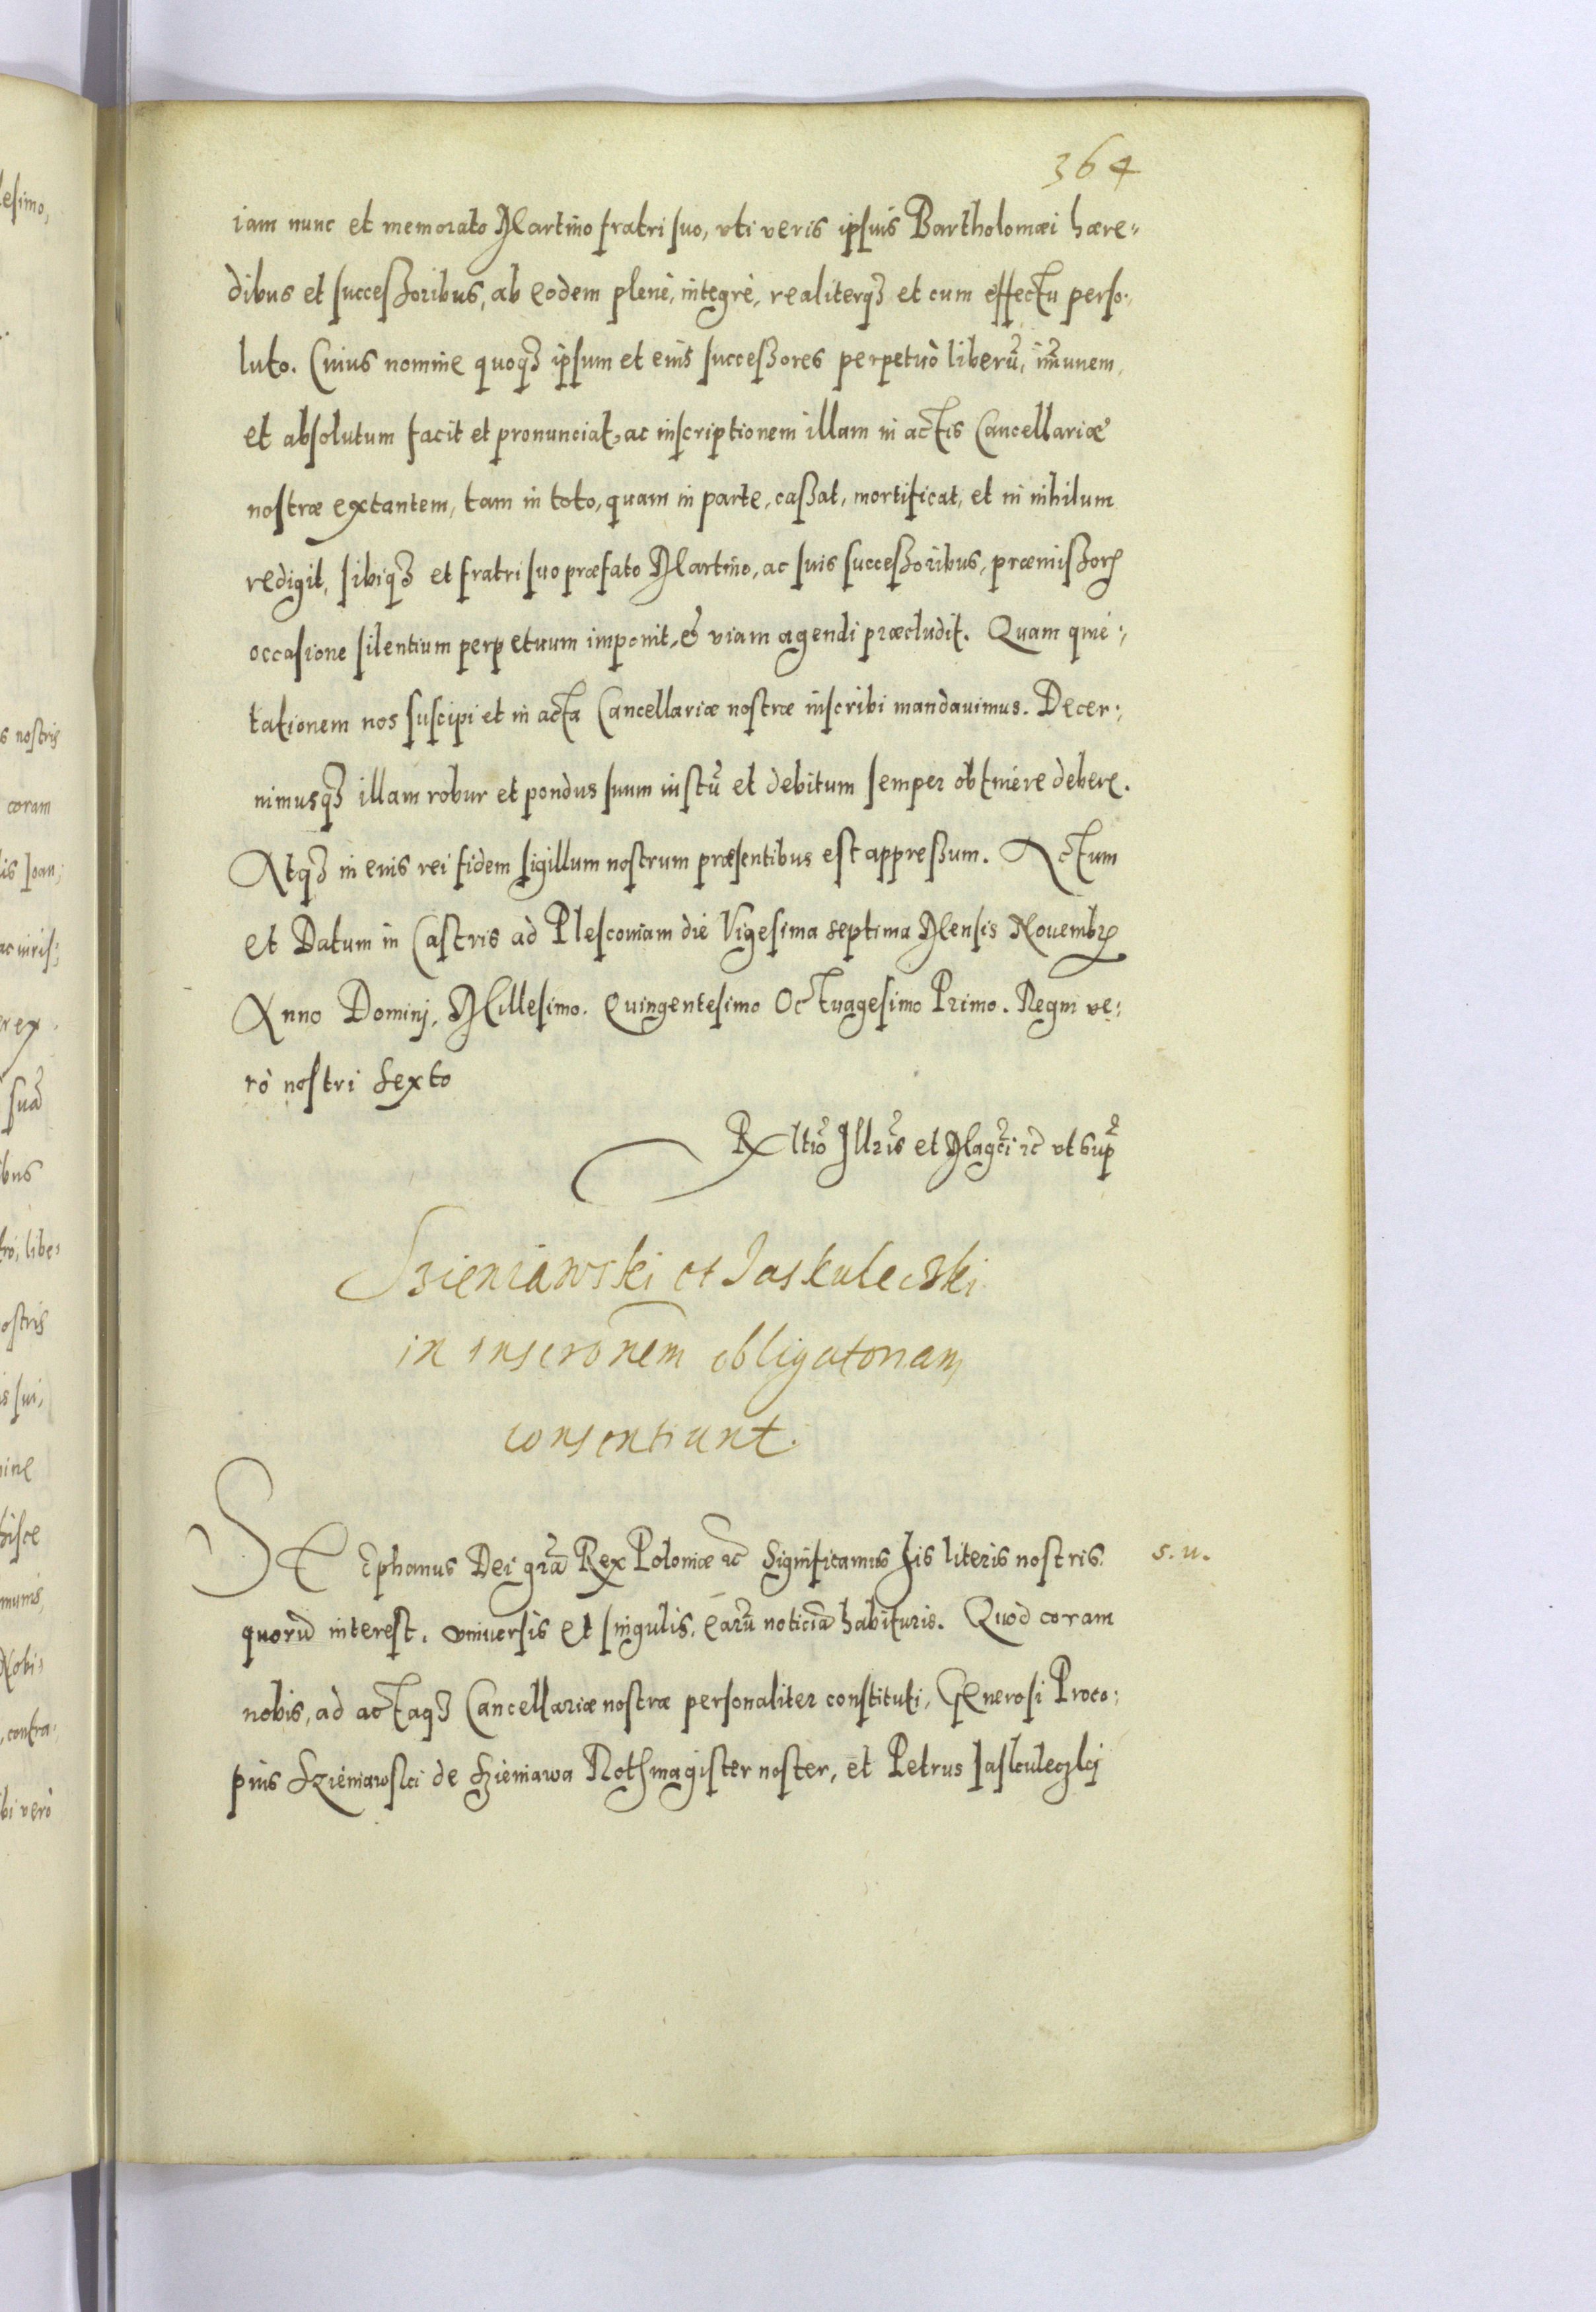 364
iam nunc et memorato Martino fratri suo, vti veris ipsius Bartholomæi hære-
dibus et successoribus, ab eodem plenè, integrè, realiterq3 et cum effectu perso-
luto. Cuius nomine quoq3 ipsum et eius successores perpetuò liberũ, im̃unem,
et absolutum facit et pronunciat, ac inscriptionem illam in actis Cancellariæ
nostræ extantem, tam in toto, quam in parte, cassat, mortificat, et in nihilum
redigit, sibiq3 et fratri suo præfato Martino, ac suis successoribus, præmissorꝝ
occasione silentium perpetuum imponit, & viam agendi præcludit. Quam quie-
tationem nos suscipi et in acta Cancellariæ nostræ inscribi mandauimus. Decer-
nimusq3 illam robur et pondus suum iustũ et debitum semper obtinere debere.
Atq3 in eius rei fidem sigillum nostrum præsentibus est appressum. Actum
et Datum in Castris ad Plescouiam die Vigesima septima Mensis Nouembꝝ
Anno Dominj, Millesimo. Quingentesimo Octuagesimo Primo. Regni ve-
rò nostri Sexto
Rltiõ Illr̃is et Mag̃ci ⁊c̃ vt sup̃
Szieniawski et Jaskuleczki
in inscrõnem obligatoriam
consentiunt.
Stephanus Dei gr̃a Rex Poloniæ ⁊c̃ Significamus his literis nostris s. u.
quorũ interest, vniuersis et singulis, earũ noticiã habituris. Quod coram
nobis, ad actaq3 Cancellariæ nostræ personaliter constituti, Generosi Proco-
pius Szieniawski de Szieniawa Rothmagister noster, et Petrus Jaskuleczkj